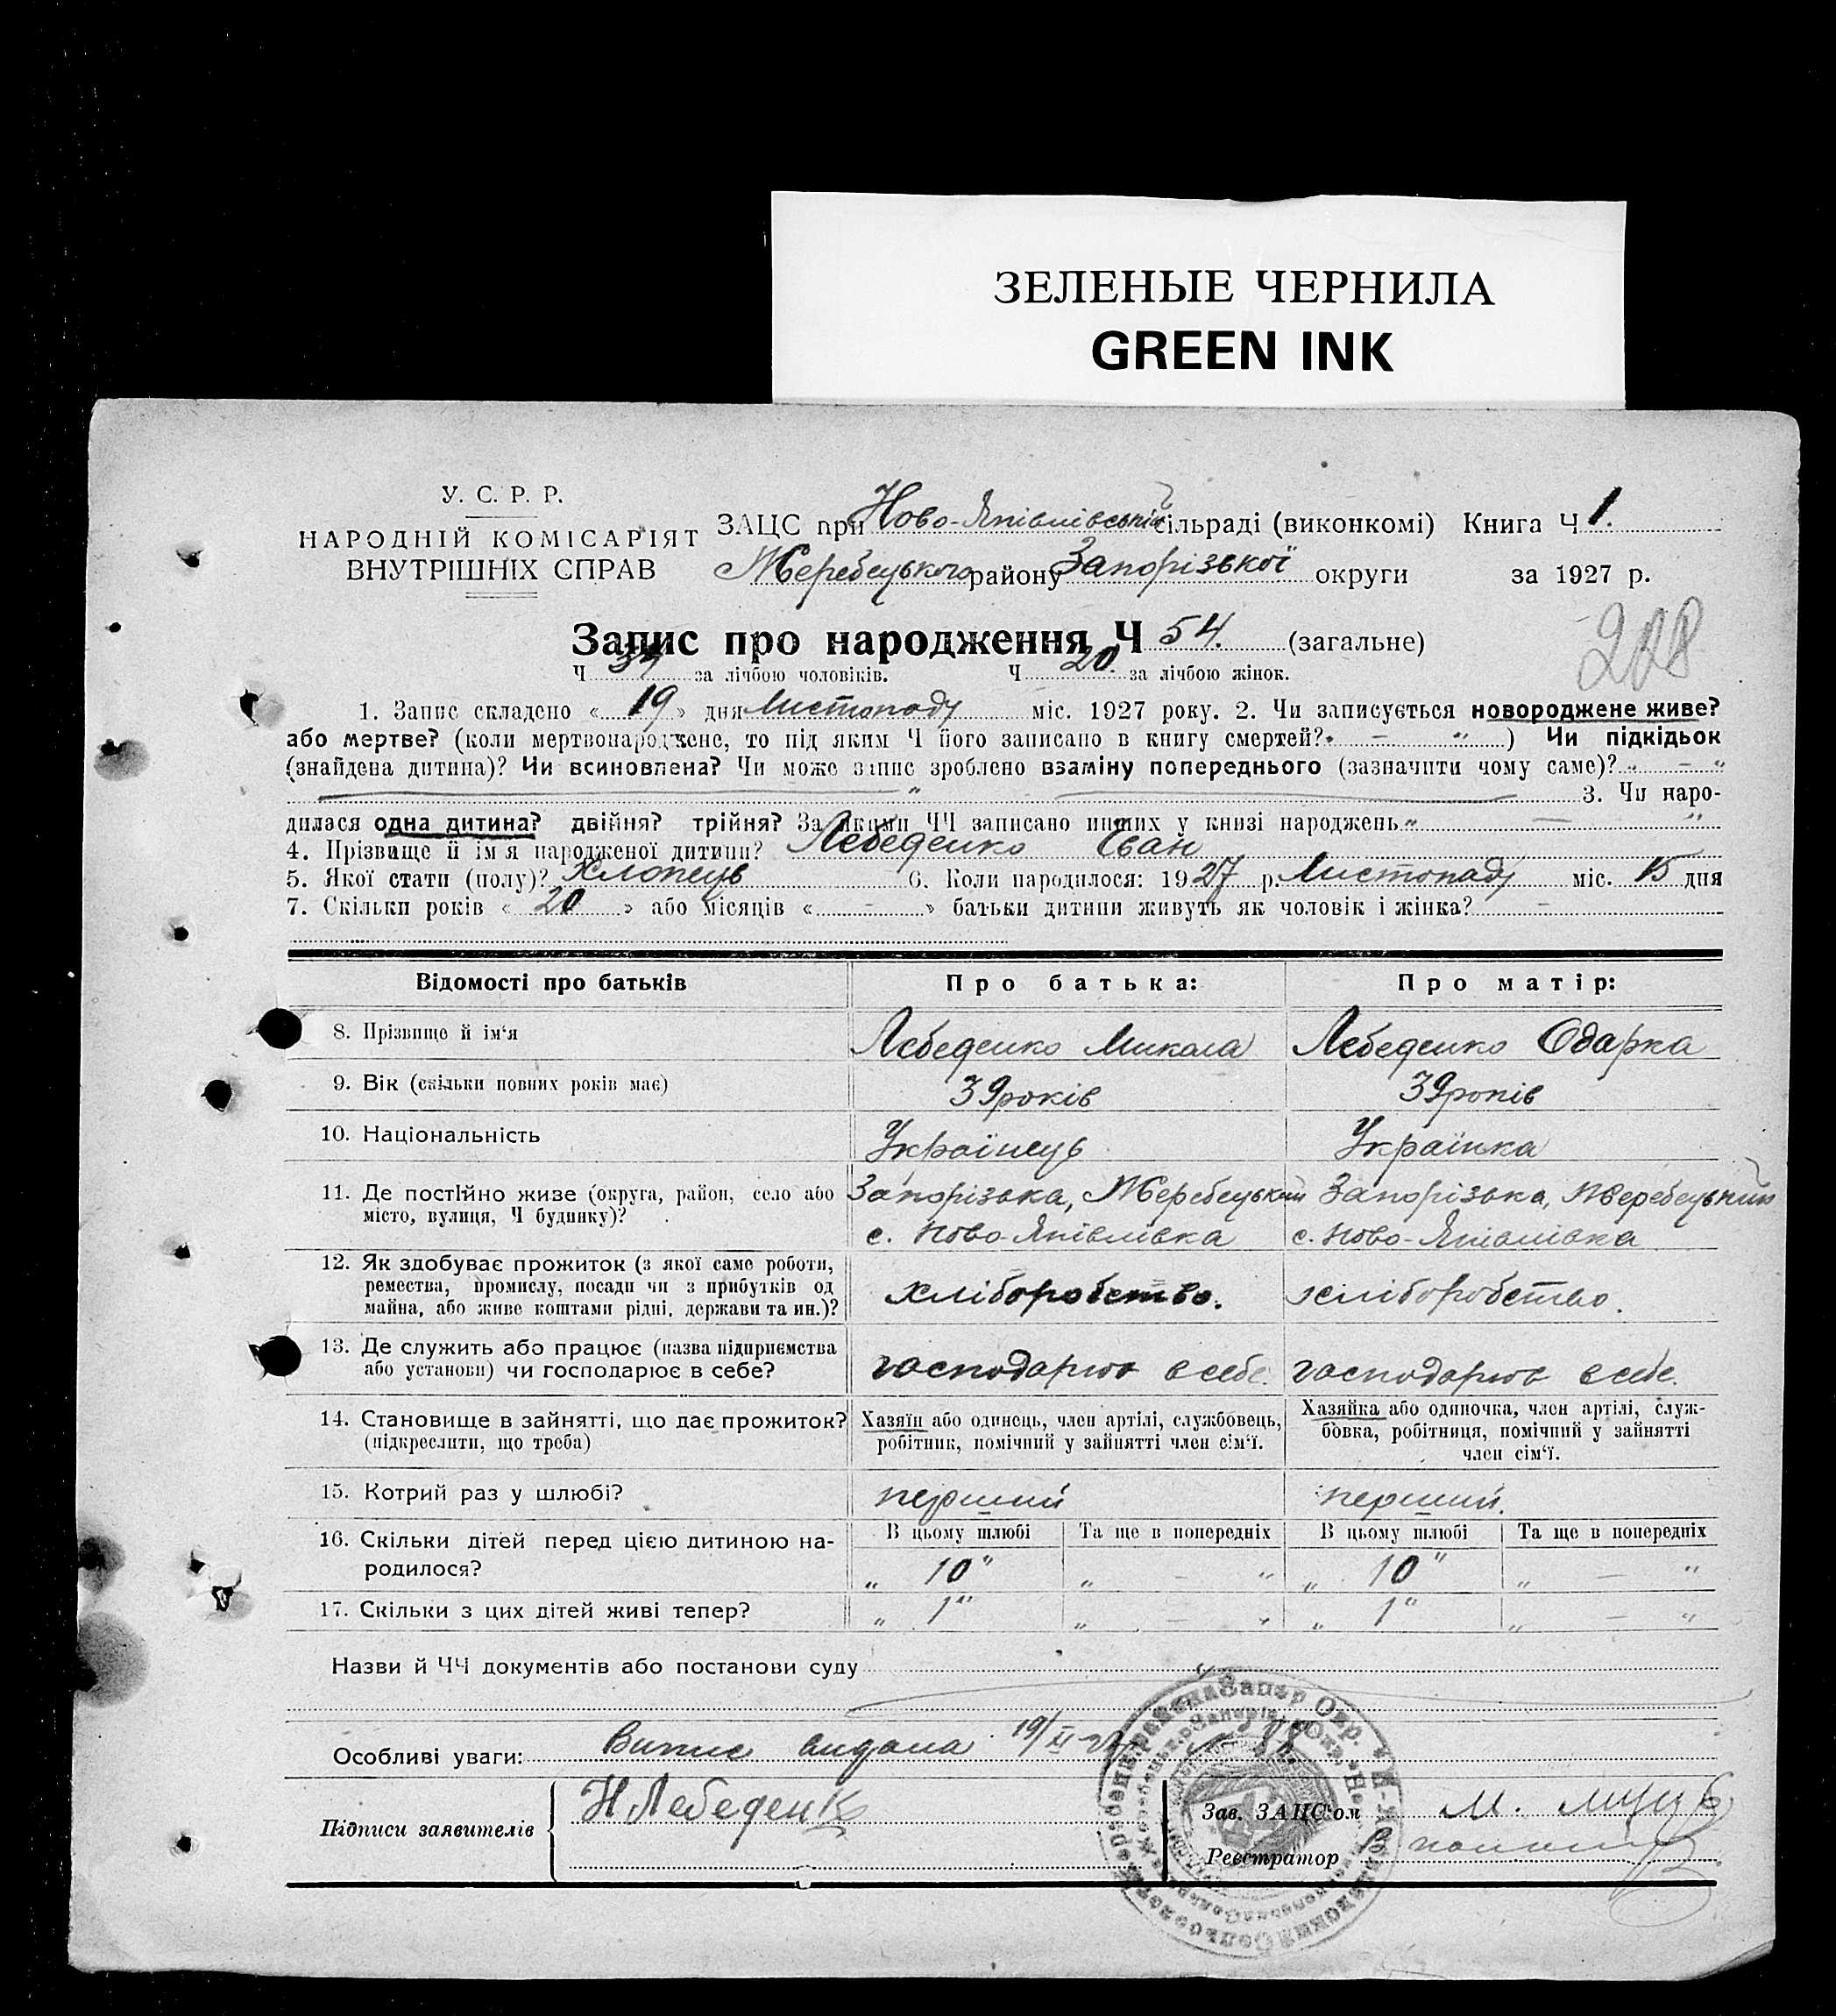 ЗЕЛЕНЫЕ ЧЕРНИЛА
GREEN INK
У. С. Р. Р.
НАРОДНІЙ КОМІСАРІЯТ
ВНУТРІШНІХ СПРАВ
ЗАЦС при Ново-Яківлівській сільраді (виконкомі) Книга Ч 1.
Жеребецького району Запорізької округи за 1927 р.
Запис про народження Ч 54. (загальне)
208
Ч 34 за лічбою чоловіків. Ч 20. за лічбою жінок.
1. Запис складено « 19 » дня Листопаду міс. 1927 року. 2. Чи записується новороджене живе?
або мертве? (коли мертвонароджене, то під яким Ч його записано в книгу смертей? - " ) Чи підкідьок
(знайдена дитина)? Чи всиновлена? Чи може запис зроблено взаміну попереднього (зазначити чому саме)? " - "
" 3. Чи наро-
дилася одна дитина? двійня? трійня? За якими ЧЧ записано инших у книзі народжень " — "
4. Прізвище й ім'я народженої дитини? Лебеденко Іван
5. Якої стати (полу)? Хлопець 6. Коли народилося: 1927 р. Листопаду міс. 15 дня
7. Скільки років « 20 » або місяців « - » батьки дитини живуть як чоловік і жінка? -
Відомості про батьків Про батька: Про матір:
8. Прізвище й ім'я Лебеденко Микола Лебеденко Одарка
9. Вік (скільки повних років має) 39 років 39 років
10. Національність Українець Українка
11. Де постійно живе (округа, район, село або Запорізька, Жеребецький Запорізька, Жеребецький
місто, вулиця, Ч будинку)? с. Ново-Яківлівка с. Ново-Яківлівка
12. Як здобуває прожиток (з якої саме роботи,
ремества, промислу, посади чи з прибутків од хліборобство. хліборобство.
майна, або живе коштами рідні, держави та ин.)?
13. Де служить або працює (назва підприємства
або установи) чи господарює в себе? господарює в себе. господарює в себе.
14. Становище в зайнятті, що дає прожиток? Хазяїн або одинець, член артілі, службовець, Хазяйка або одиночка, член артілі, служ-
(підкреслити, що треба) робітник, помічний у зайнятті член сім'ї. бовка, робітниця, помічний у зайнятті
член сім'ї.
15. Котрий раз у шлюбі? перший перший.
16. Скільки дітей перед цією дитиною на- В цьому шлюбі Та ще в попередніх В цьому шлюбі Та ще в попередніх
родилося? " 10 " " - " " 10 " " — "
17. Скільки з цих дітей живі тепер? " 1 " " — " " 1 " " — "
Назви й ЧЧ документів або постанови суду
Особливі уваги: Випис видана 19/XI-27
Підписи заявителів Н Лебеденко Зав. ЗАЦС'ом М.
Реєстратор